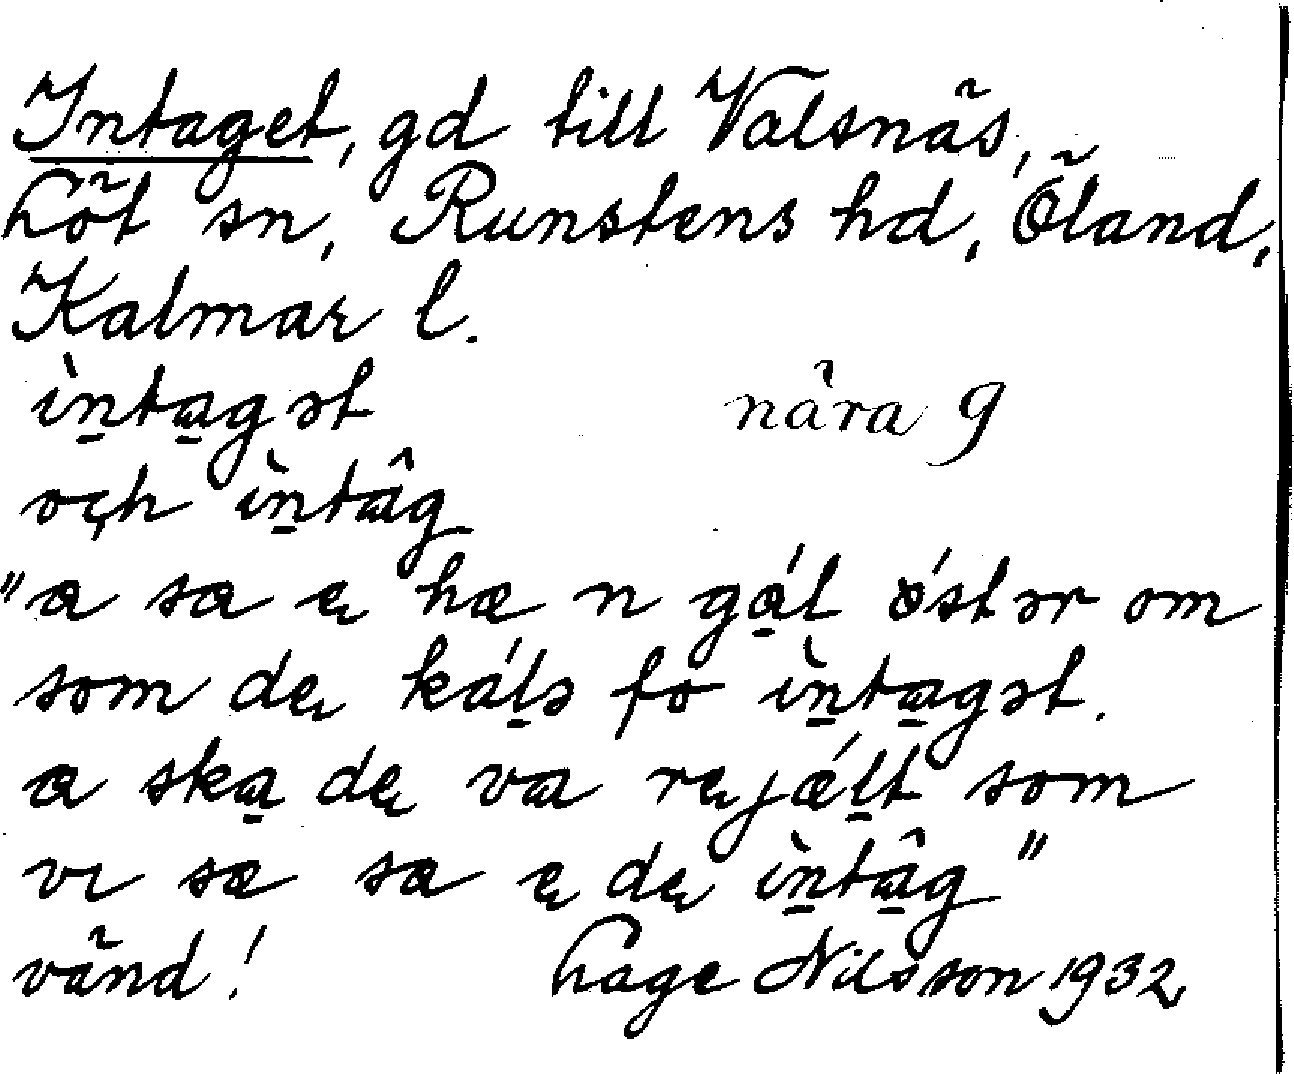 Intaget, gd till Valsnäs,
Löt sn, Runstens hd, Öland,
Kalmar l.
ìntagət nära 9
och ìntâg
"a sa e hæ n gál ö́stər om
som de kálə fo ìntagət.
a ska de va rejǽlt som
vı sæ sa e de ìntâg"
vänd! Lage Nilsson 1932